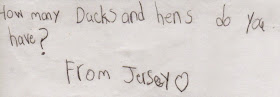 How many Ducks and hens do you
have?
From Jersey♡